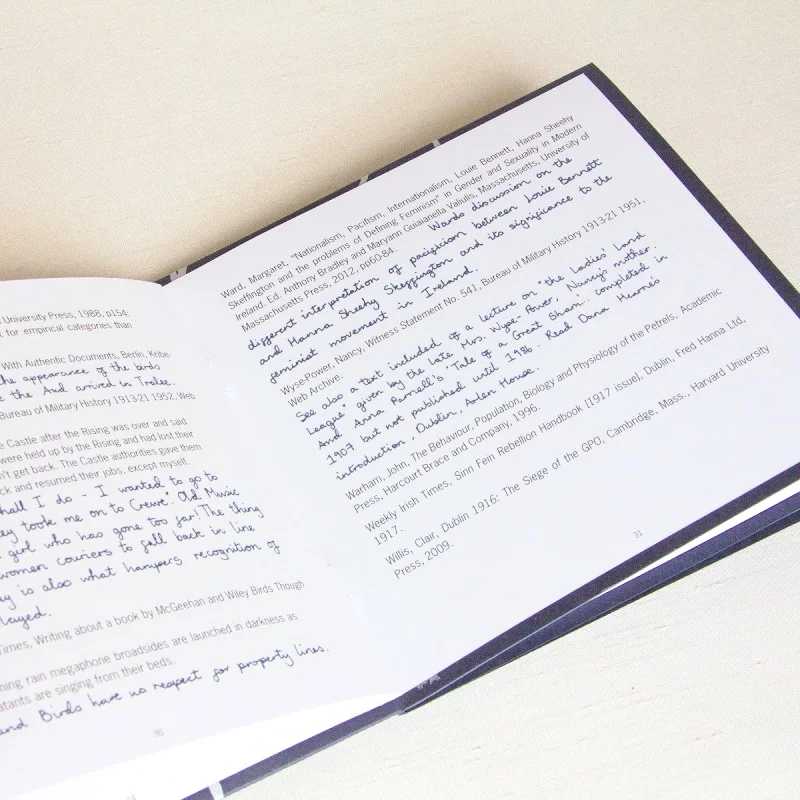 University Press, 1988, p154.
for empirical categories than
With Authentic Documents, Berlin, Kribe
the appearance of the birds
the Aud arrived in Tralee.
Bureau of Military History 1913-21 1952, Web
Castle after the Rising was over and said
were held up by the Rising and had lost their
n't get back. The Castle authorities gave them
ck and resumed their jobs, except myself.
hall I do - I wanted to go
ey took me on to Crewe". Old Music
girl who has gone too far! The thing
women couriers to fall back in line
ay is also what hampers recognition of
layed.
Times, Writing about a book by McGeehan and Wiley Birds Though
ning rain megaphone broadsides are launched in darkness as
atants are singing from their beds.
and Birds have no respect for property lines.
30
Ward, Margaret, "Nationalism, Pacifism, Internationalism, Louie Bennett, Hanna Sheehy
Skeffington and the problems of Defining Feminism" in Gender and Sexuality in Modern
Ireland. Ed. Anthony Bradley and Maryann Guiaianella Valiulis, Massachusetts, University of
Massachusetts Press, 2012, pp60-84. Wards discussion on the
different interpretation of pacificism between Louie Bennett
and Hanna Sheehy Skeffington and its significance to the
feminist movement in Ireland.
Wyse-Power, Nancy, Witness Statement No. 541. Bureau of Military History 1913-21 1951,
Web Archive.
See also a text included of a lecture on "the Ladies' Land
League" given by the late Mrs. Wyse-Power, Nancy's mother.
And Anna Parnell's 'Tale of a Great Sham' completed in
1907 but not published until 1986. Read Dana Hearnes
introduction, Dublin, Arlen House.
Warham, John, The Behaviour, Population, Biology and Physiology of the Petrels, Academic
Press, Harcourt Brace and Company, 1996.
Weekly Irish Times, Sinn Fein Rebellion Handbook [1917 issue], Dublin, Fred Hanna Ltd,
1917.
Willis, Clair, Dublin 1916: The Siege of the GPO, Cambridge, Mass., Harvard University
Press, 2009.
31